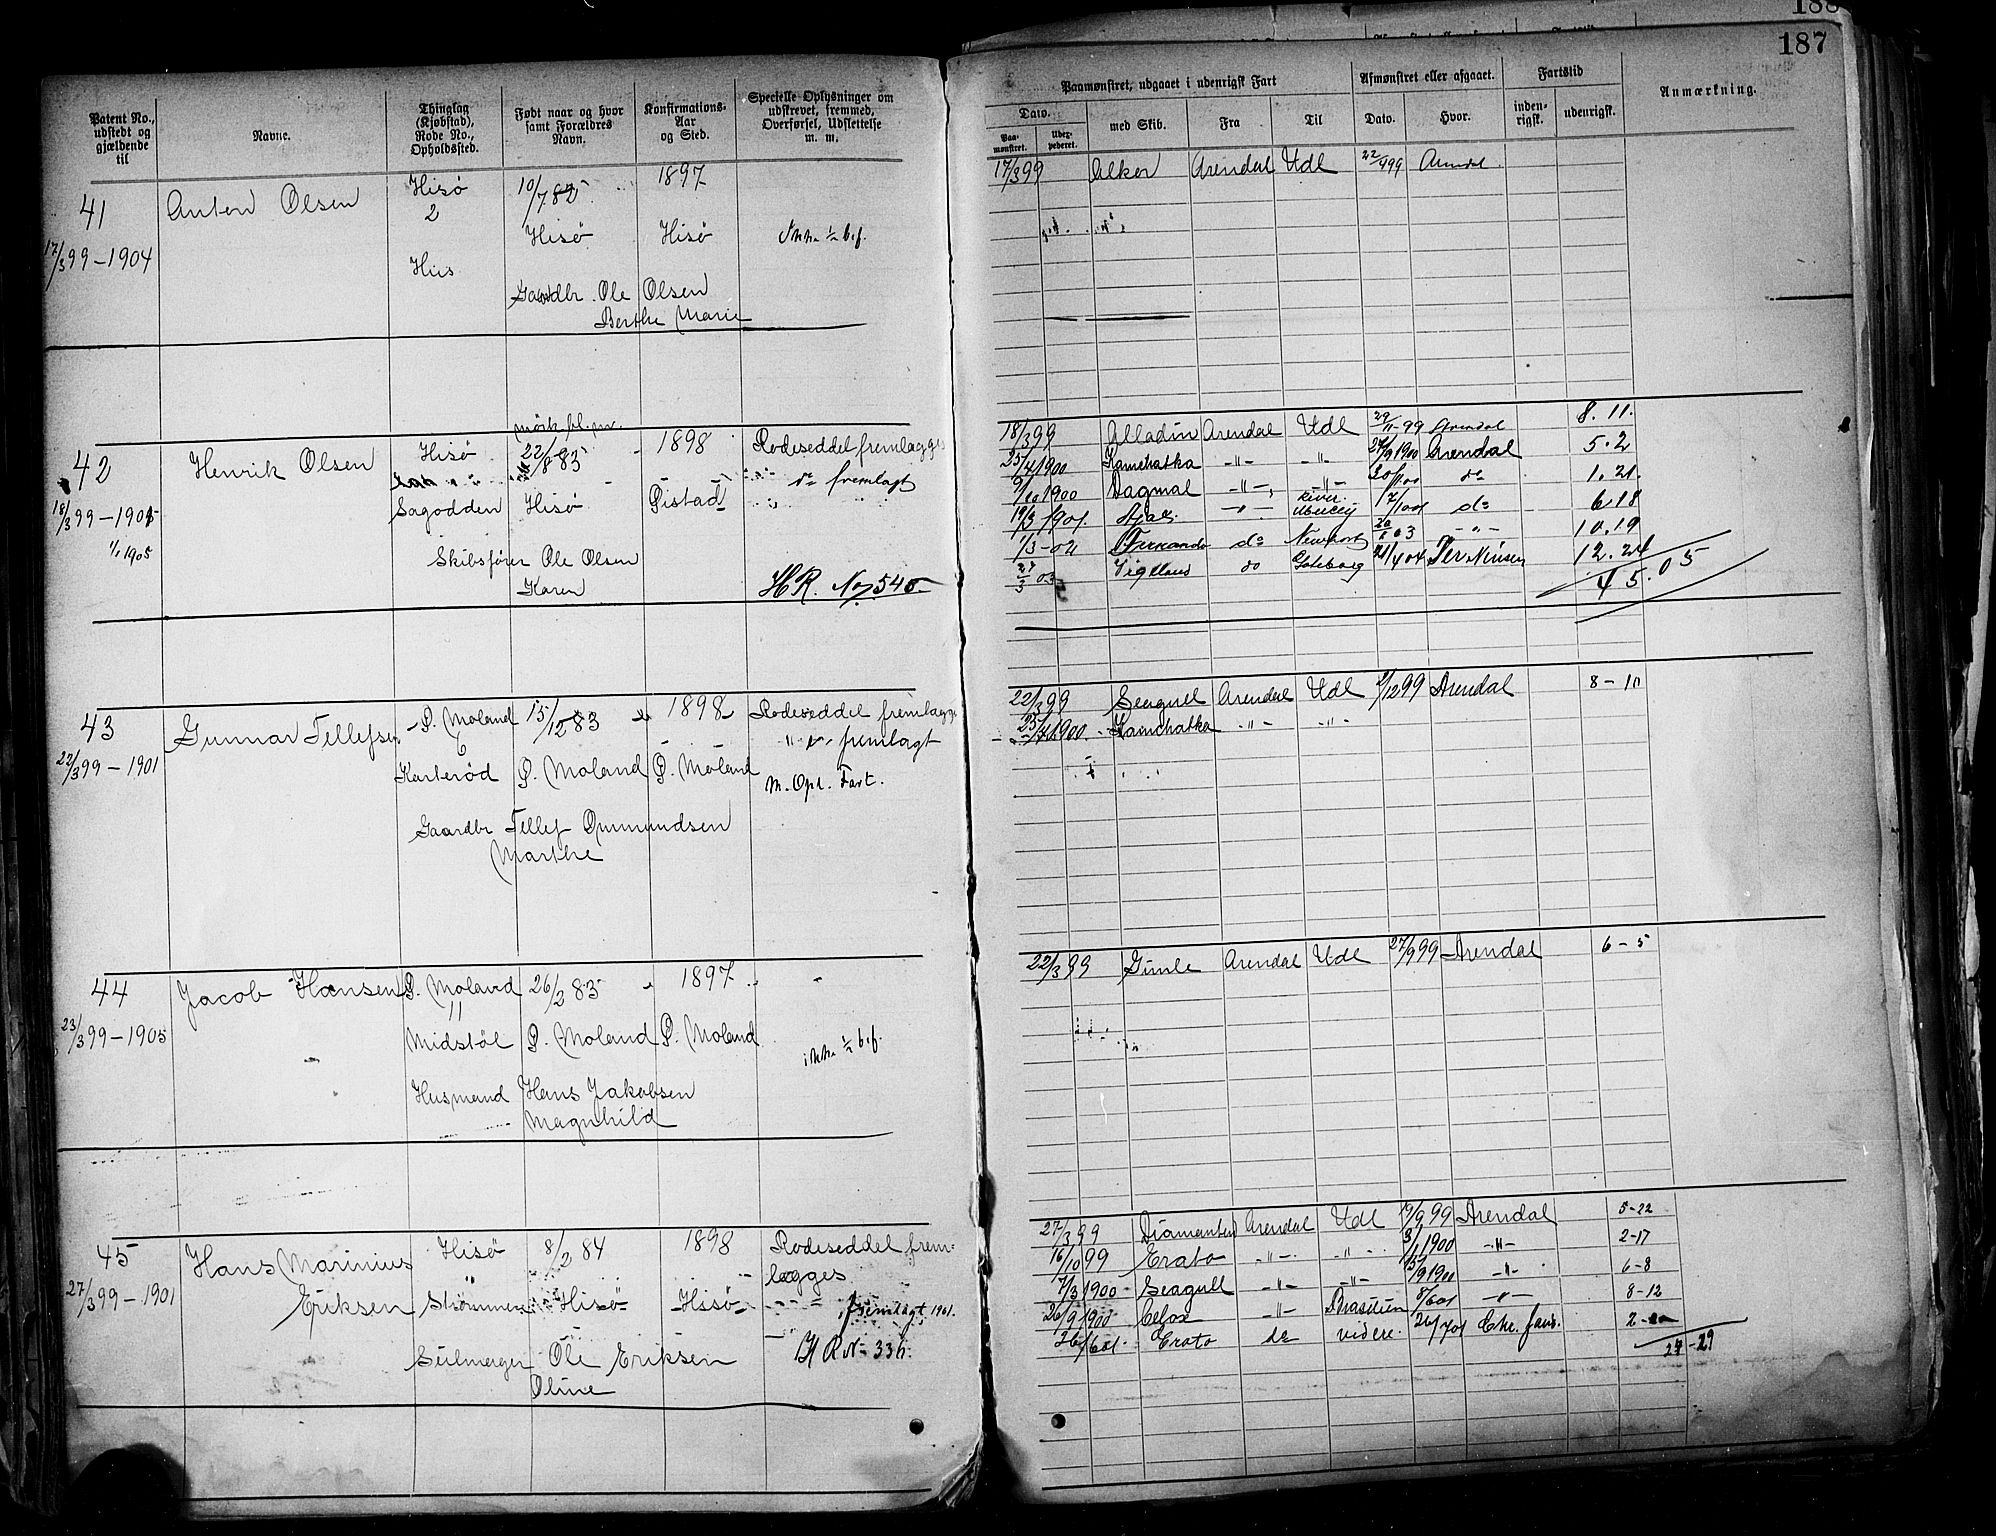 188
187
Patent No., udstedt og gjældende til
Navne.
Thinglag (Kjøbstad), Rode No., Opholdssted.
Født naar og hvor samt Forældres Navn.
Konfirmations-Aar og Sted.
Specielle Oplysninger om udskrevet, fremmed, Overførsel, Udslettelse m. m.
Paamønstret, udgaaet i udenrigsk Fart
Dato.
Paa-mønstret.
med Skib.
Fra
Til
Afmønstret eller afgaaet.
Dato.
Hvor.
Fartstid
inden-rigsk.
udenrigsk.
Anmærkning.
41 Anton Olsen Hisø 10/7 82 1897
2
17/3 99 – 1904 Hisø Hisø
Hus
Gaardbr Ole Olsen
Berthe Marie
17/3 99 Alker Arendal Udl 22/4 99 Arendal
42 Henrik Olsen Hisø 22/8 83 1898 Rodeseddel fremlægges
fremlagt
18/3 99 – 1901 Sagodden Hisø Øistad
1/1 1905
Skibsfører Ole Olsen
Karen HR. No 540
18/3 99 Alladin Arendal Udl 29/11 99 Arendal 8. 11.
25/4 1900 Kamchatka –"– –"– 27/9 1900 Arendal 5. 2
9/10 1900 Dagmar –"– –"– 30/11 00 do 1. 21.
19/3 1901. Ajax. –"– River Mersey do 6 18
1/3 – 02 Fernando do Newport –"– 10. 19
27/3 03 Vigeland do Goteborg 21/4 04 12. 24
45. 05
43 Gunnar Tellefsen Ø. Moland 15/12 83 1898 Rodeseddel fremlægges
6 fremlagt
22/3 99 – 1901 Karterød Ø. Moland Ø. Moland M. Oph. Fart.
Gaardbr Tellef Ommundsen
Marthe
22/3 99 Seagull Arendal Udl 2/12 99 Arendal 8 – 10
25/4 1900 Kamchatka –"– –"–
44 Jacob Hansen Ø. Moland 26/2 83 1897
11
23/3 99 – 1905 Midstøl Ø. Moland Ø. Moland
Husmand Hans Jakobsen
Magnhild
22/3 99 Gimle Arendal Udl 27/9 99 Arendal 6 – 5
45 Hans Marinius Hisø 8/2 84 1898 Rodeseddel frem-
lægges
27/3 99 – 1901 Eriksen Strømmen Hisø Hisø fremlagt 1901.
H R No 336.
Seilmager Ole Eriksen
Oline
27/3 99 Diamanten Arendal Udl 19/9 99 Arendal 5 – 22
16/10 99 Erato –"– –"– 3/1 1900 –"– 2 – 17
7/3 1900 Seagull –"– –"– 15/9 1900 –"– 6 – 8
26/9 1900 –"– 8/6 01 –"– 8 – 12
26/6 01. Erato do videre. 26/7 01
24 – 29